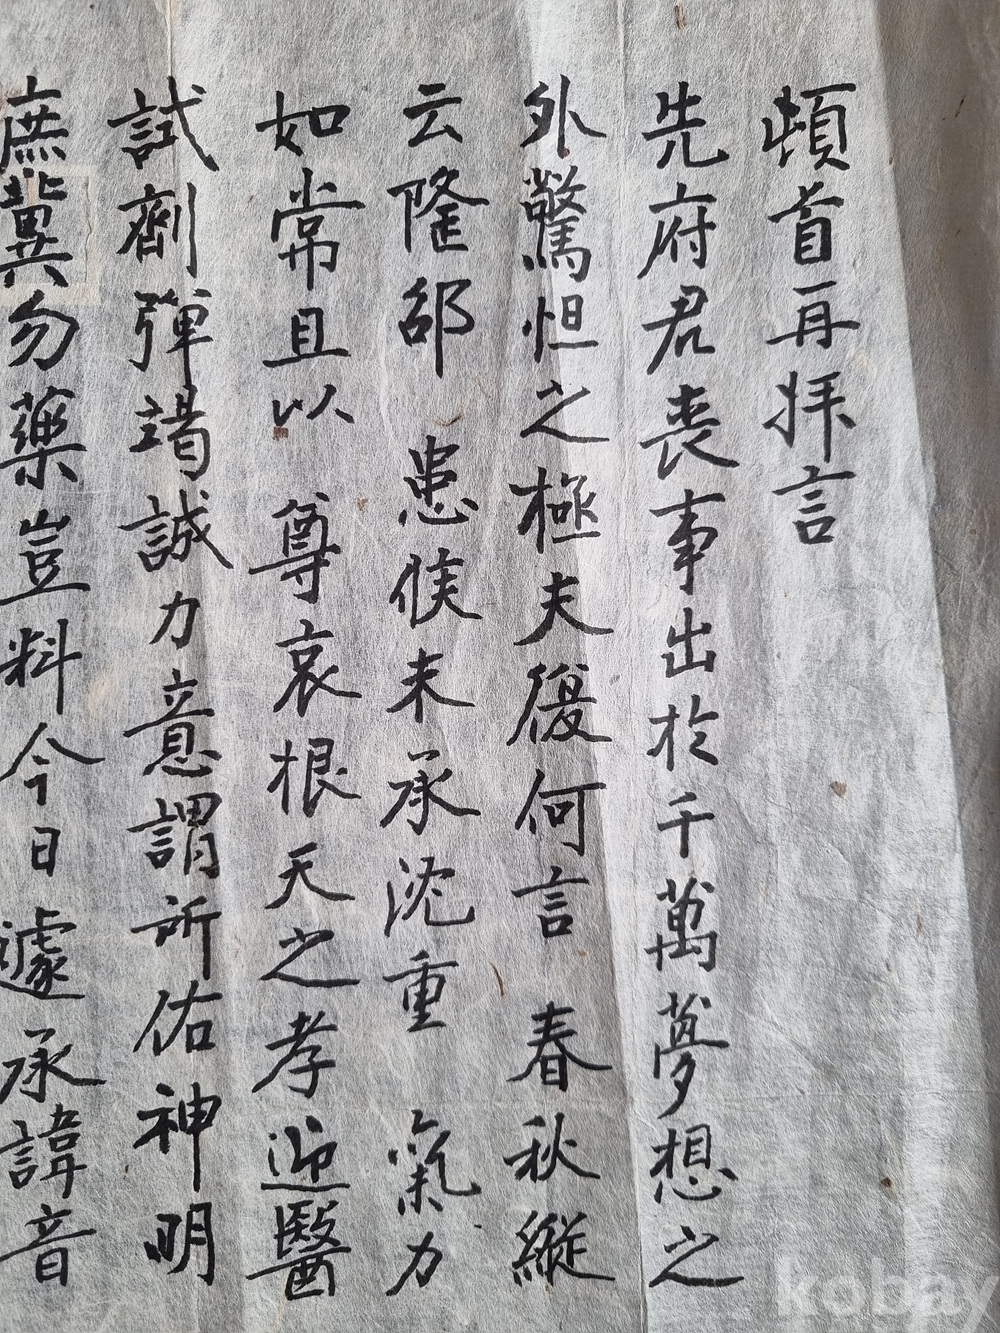 頓首再拜言
先府君喪事出於千萬夢想之
外驚怛之極夫復何言 春秋縱
云隆邵 患候未承沈重 氣力
如常且以 尊哀根天之孝迎醫
試劑殫竭誠力意謂所佑神明
庶冀勿藥豈料今日遽承諱音
kobay